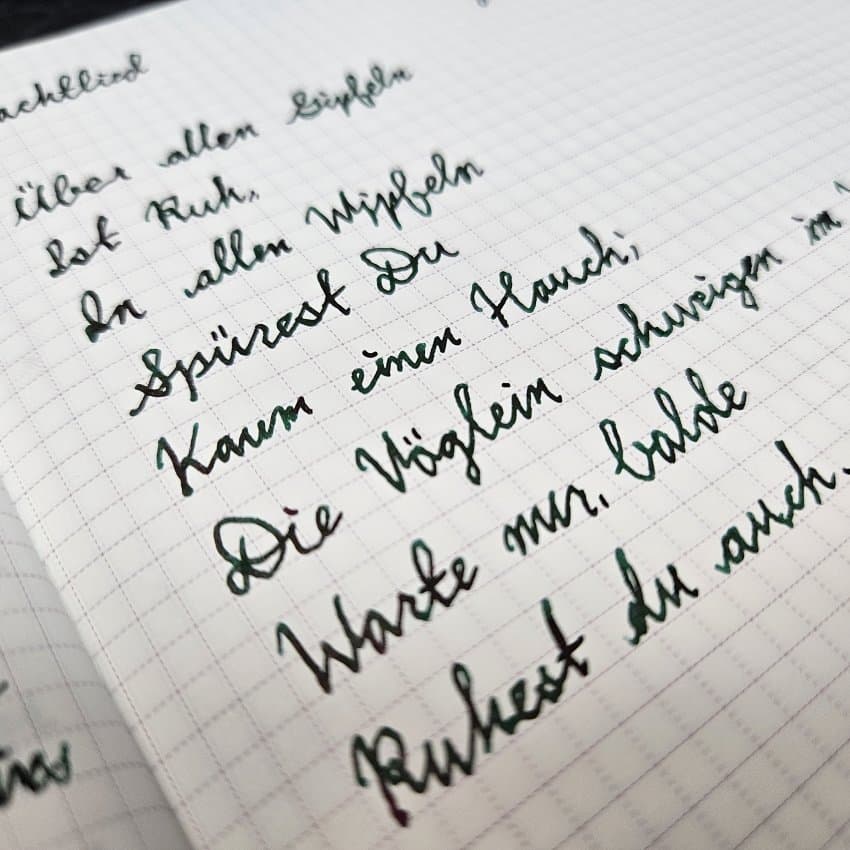 achtlied
Über allen Gipfeln
Ist Ruh,
In allen Wipfeln
Spürest Du
Kaum einen Hauch;
Die Vöglein schweigen im
Warte nur, balde
Ruhest du auch.